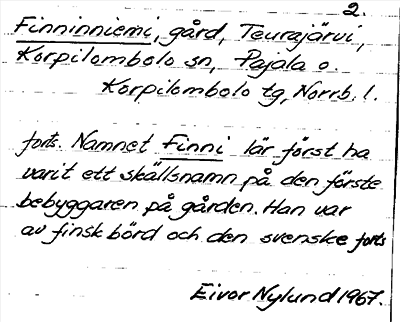 2.
Finninniemi, gård, Teurajärvi,
Korpilombolo sn, Pajala o.
Korpilombolo tg, Norrb. l.
forts. Namnet Finni lär först ha
varit ett skällsnamn på den förste
bebyggaren på gården. Han var
av finsk börd och den svenske forts
Eivor Nylund 1967.